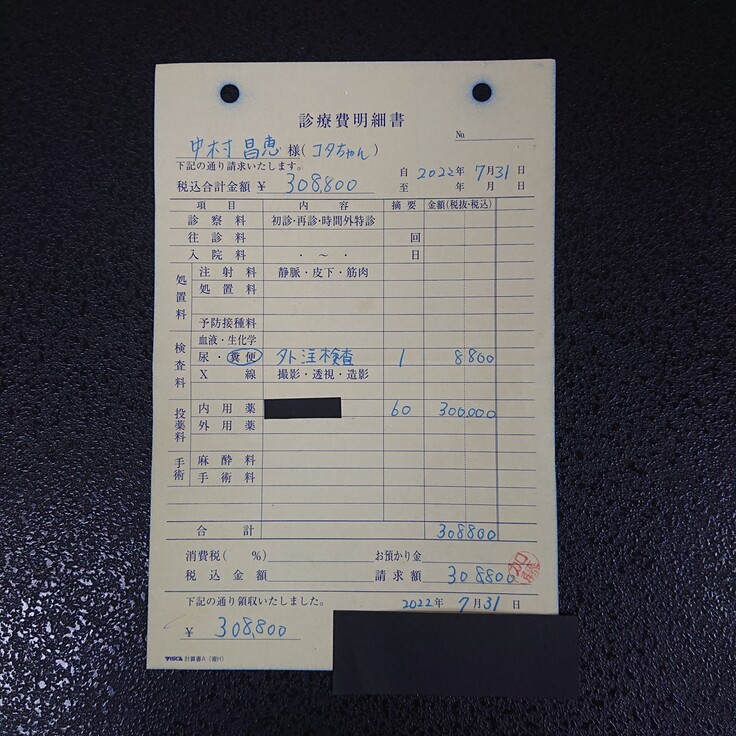 診療費明細書
№
中村 昌恵 様(コタちゃん)
下記の通り請求いたします。
自 2022年 7月31日
税込合計金額 ¥ 308,800
至 年 月 日
項目 内容 摘要 金額(税抜・税込)
診察料 初診・再診・時間外特診
往診料 回
入院料 ・ ～ ・ 日
処置料
注射料 静脈・皮下・筋肉
処置料
予防接種料
検査料
血液・生化学
尿・糞便 外注検査 1 8800
X線 撮影・透視・造影
投薬料
内用薬 60 300,000
外用薬
手術
麻酔料
手術料
合計 308800
消費税( %) お預かり金
税込金額 請求額 308800
下記の通り領収いたしました。 2022年 7月31日
¥ 308,800
計算書A